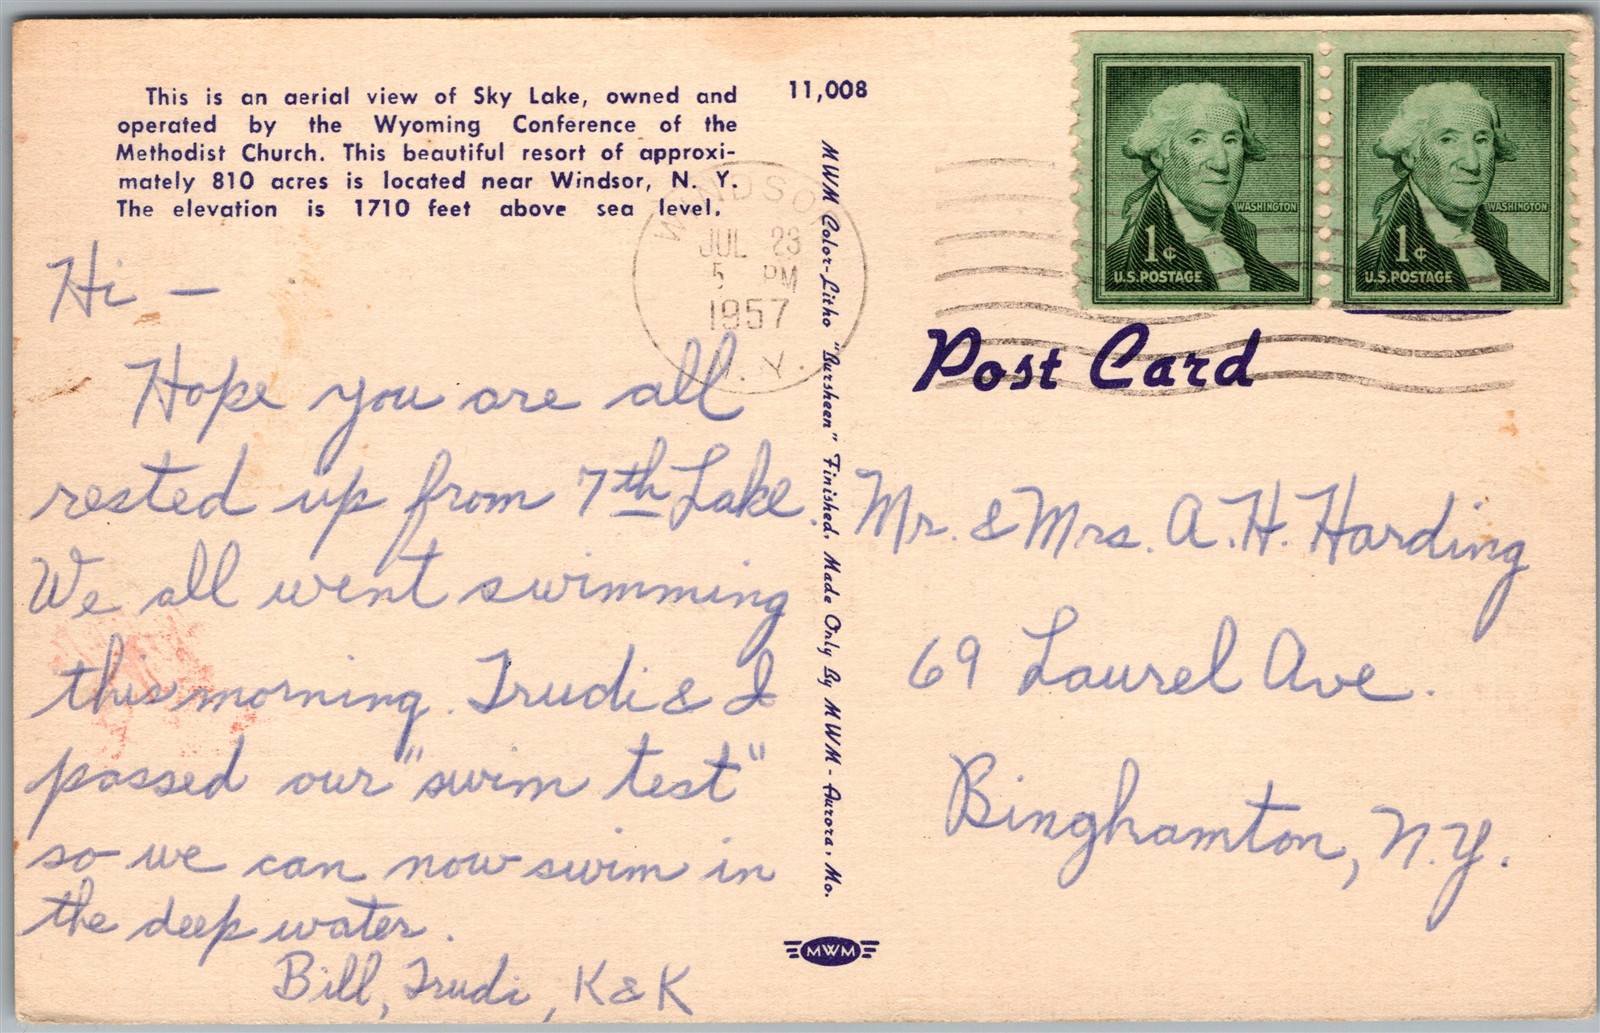 This is an aerial view of Sky Lake, owned and
operated by the Wyoming Conference of the
Methodist Church. This beautiful resort of approxi-
mately 810 acres is located near Windsor, N. Y.
The elevation is 1710 feet above sea level.
11,008
WINDSOR
JUL 23
5 PM
1957
N.Y.
WASHINGTON
1¢
U.S. POSTAGE
WASHINGTON
1¢
U.S. POSTAGE
Post Card
Hi -
Hope you are all
rested up from 7th Lake.
We all went swimming
this morning. Trudi & I
passed our "swim test"
so we can now swim in
the deep water.
Bill, Trudi, K & K
MWM Color-Litho "Bursheen" Finished. Made Only By MWM - Aurora, Mo.
Mr. & Mrs. A. H. Harding
69 Laurel Ave.
Binghamton, N.Y.
MWM